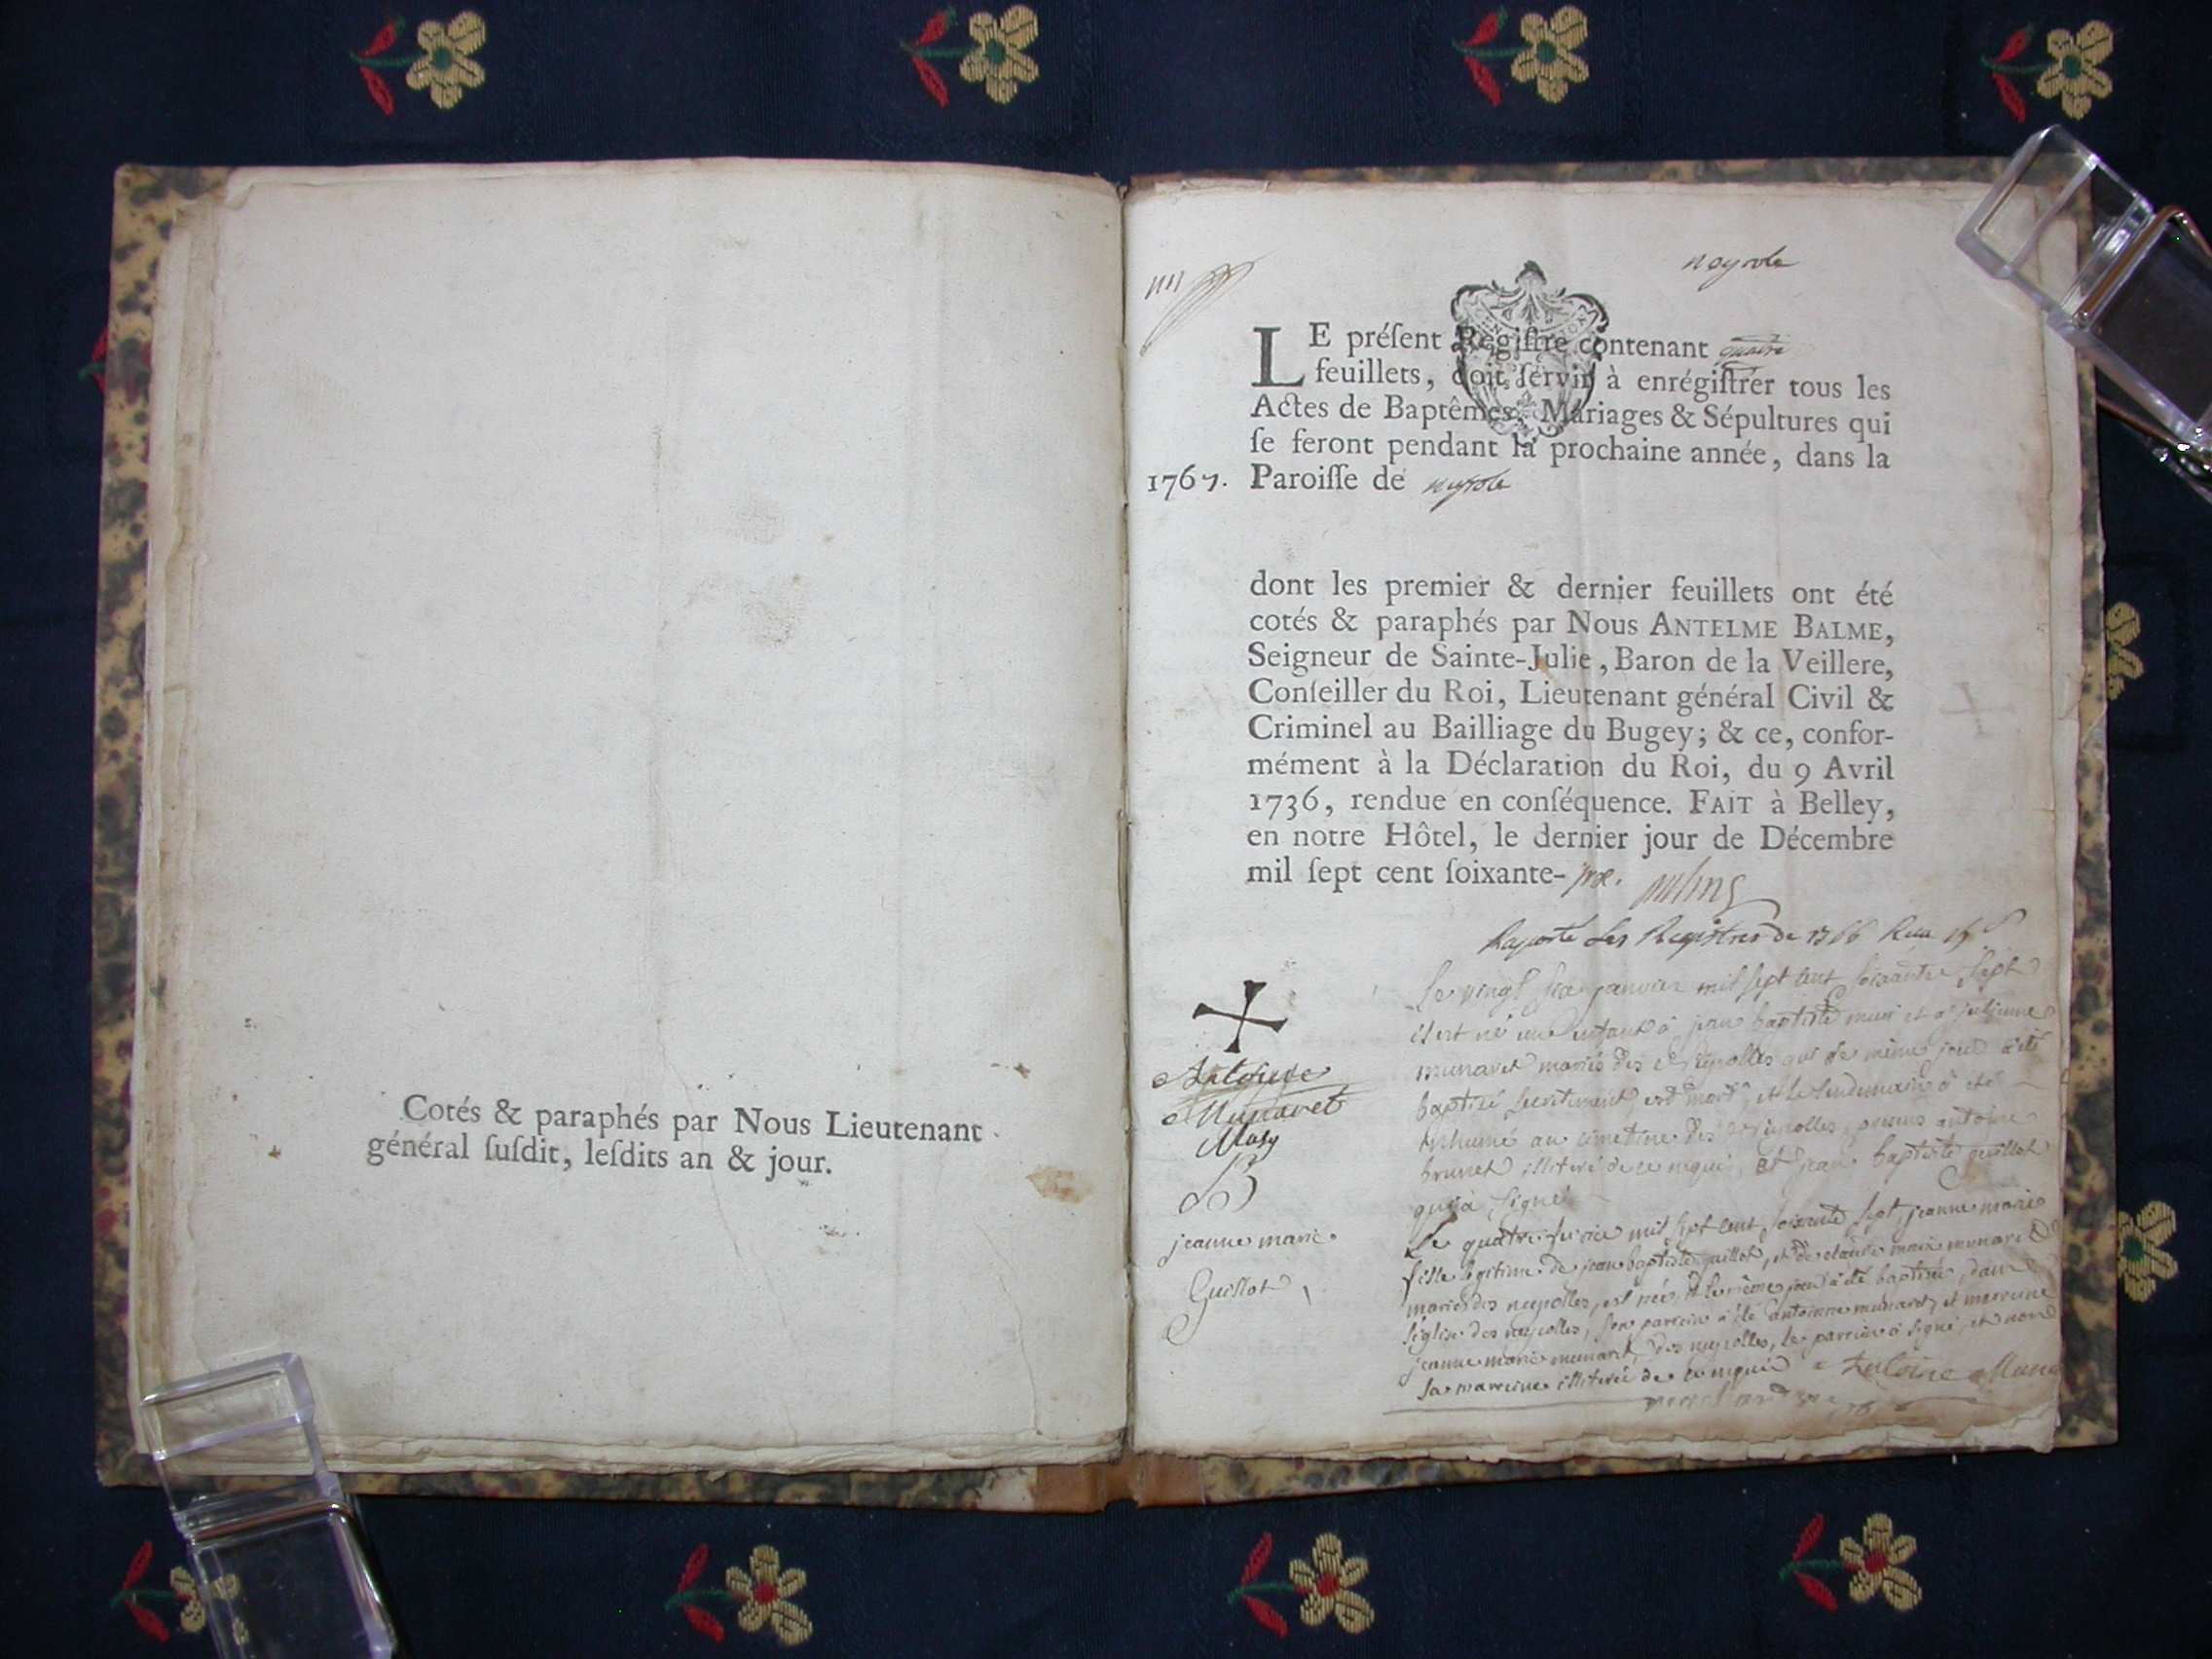 Cotés & paraphés par Nous Lieutenant
général ſuſdit, leſdits an & jour.
neyrole
LE préſent Regiſtre contenant quatre
feuillets, doit ſervir à enrégiſtrer tous les
Actes de Baptêmes, Mariages & Sépultures qui
ſe feront pendant la prochaine année, dans la
1767. Paroiſſe de neyrole
dont les premier & dernier feuillets ont été
cotés & paraphés par Nous ANTELME BALME,
Seigneur de Sainte-Julie, Baron de la Veillere,
Conſeiller du Roi, Lieutenant général Civil &
Criminel au Bailliage du Bugey; & ce, confor-
mément à la Déclaration du Roi, du 9 Avril
1736, rendue en conſéquence. FAIT à Belley,
en notre Hôtel, le dernier jour de Décembre
mil ſept cent ſoixante-
Raporté les Registres de 1766
Le vingt six janvier mil sept cent soixante sept
il est né un enfant à jean baptiste et a julienne
munaret mariés des neyrolles qui le même jour a été
baptisé secretement est mort, et le lendemain a été
inhumé au cimetiere des neyrolles, presens antoine
brunet illiteré de ce requis, et jean baptiste guillot
qui a signé
Antoine
Munaret
jeanne marie
Guillot
Le quatre fevrier mil sept cent soixante sept, jeanne marie
fille legitime de jean baptiste guillot, et de claude marie munaret
mariés des neyrolles, est née, et le même jour a été baptisée, dans
l'église des neyrolles, son parrein a été antoinne munaret, et marreine
jeanne marie munaret, des neyrolles, le parrein a signé, et non
la marreine illiterée de ce requise Antoine Muna